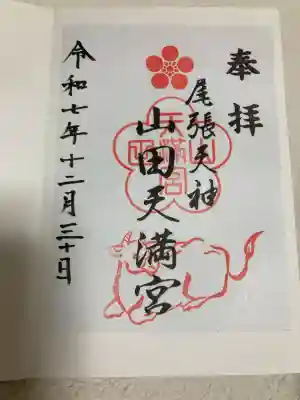 奉拝
尾張天神
山田天満宮
令和七年十二月三十日
天満宮
山